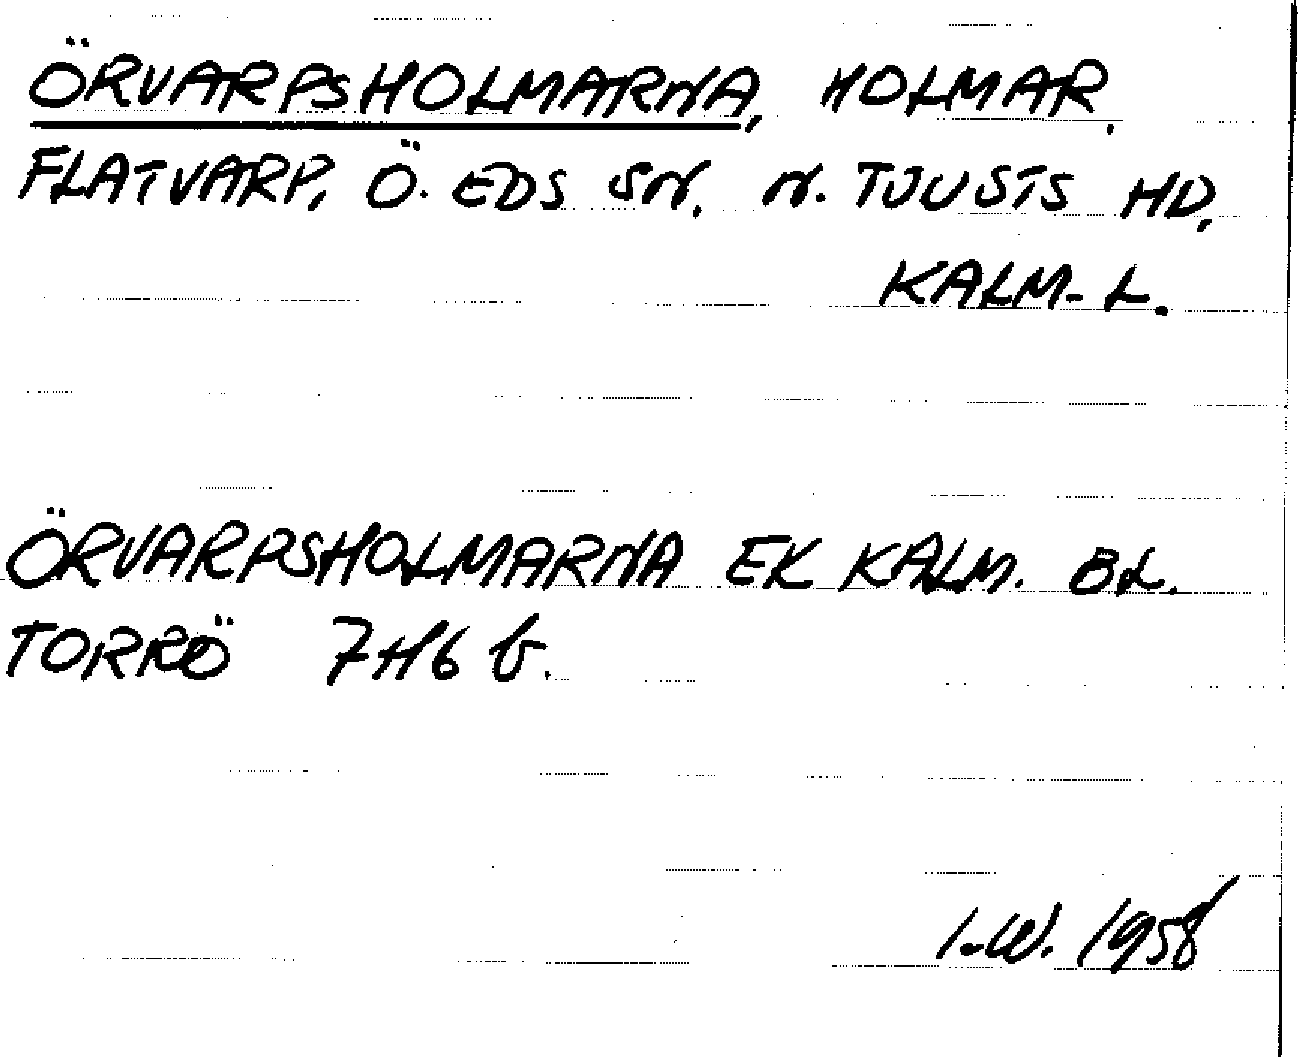 ÖRVARPSHOLMARNA, HOLMAR.
FLATVARP, Ö. EDS SN. N. TJUSTS HD,
KALM. L.
ÖRVARPSHOLMARNA EK KALM. BL.
TORRÖ 7H6 b.
I.W. 1958